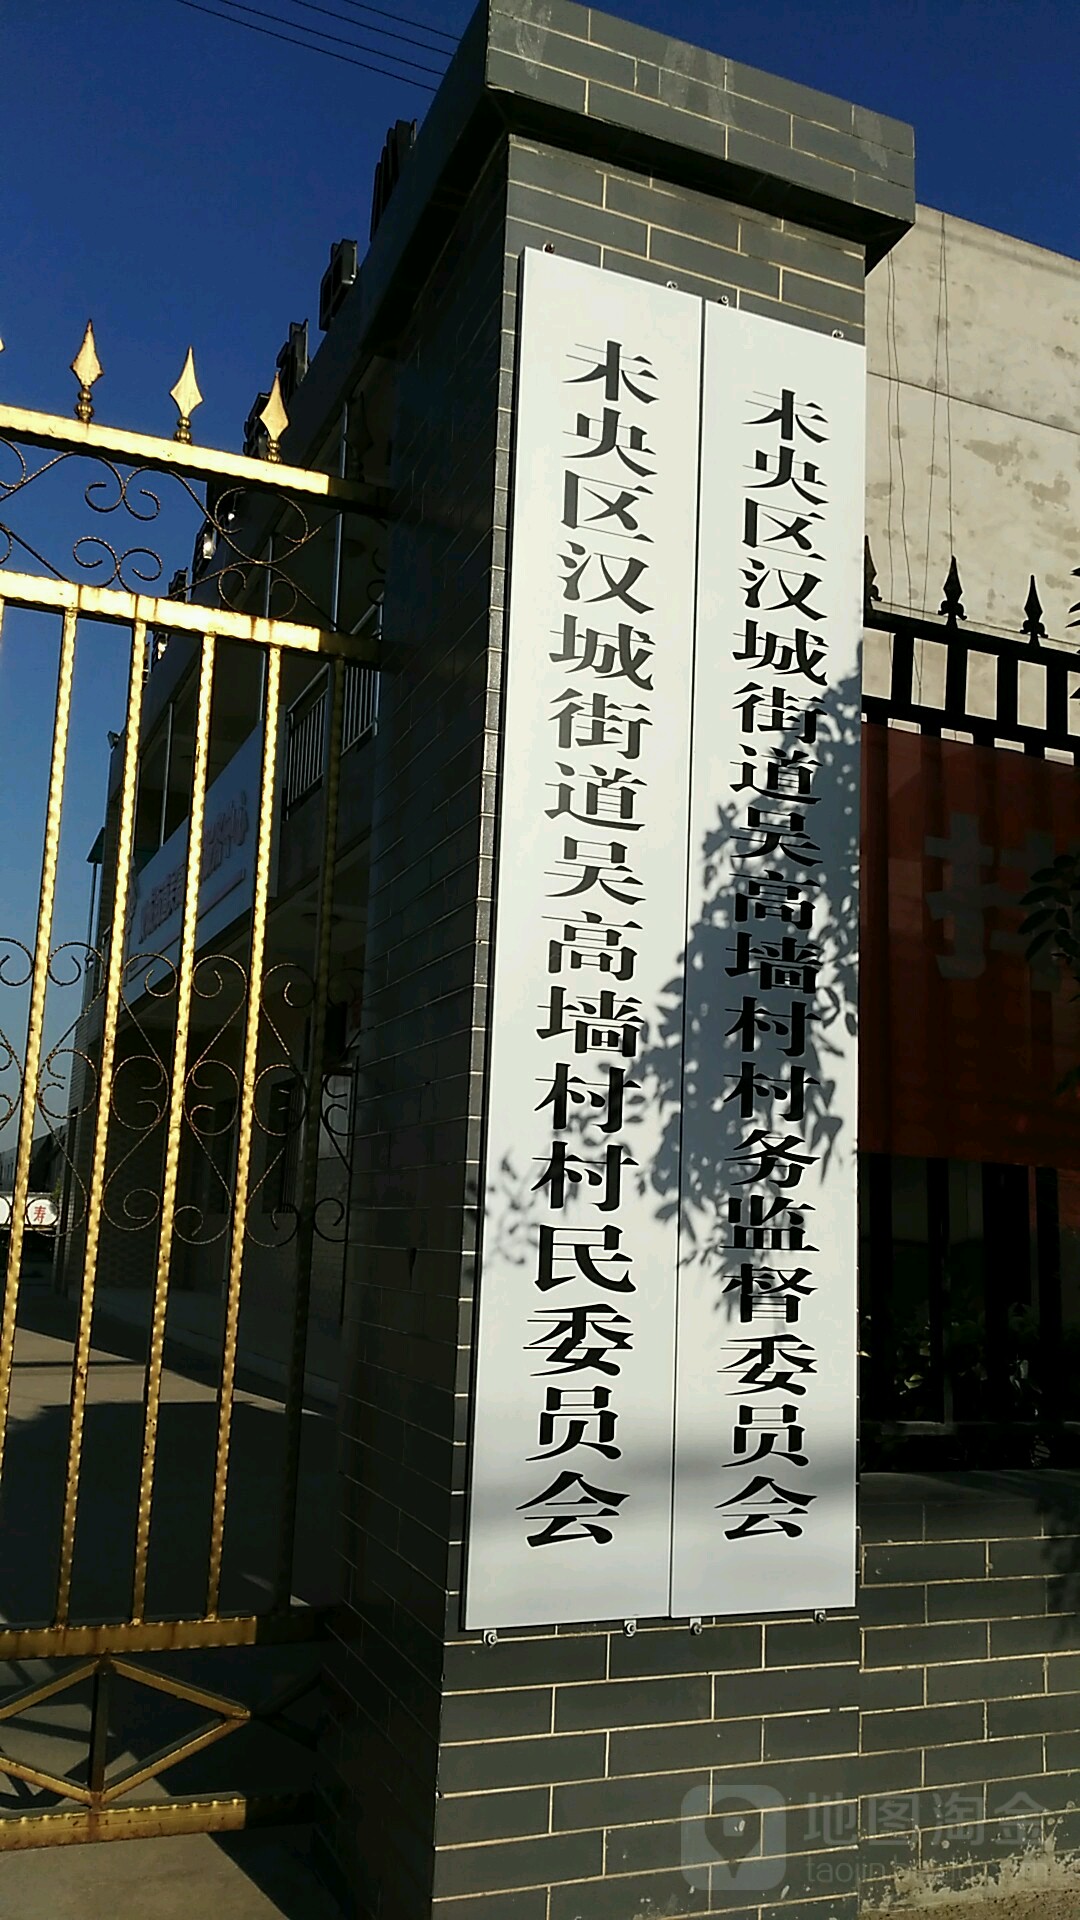 未央区汉城街道吴高墙村村民委员会
未央区汉城街道吴高墙村村务监督委员会
寿
地图淘金